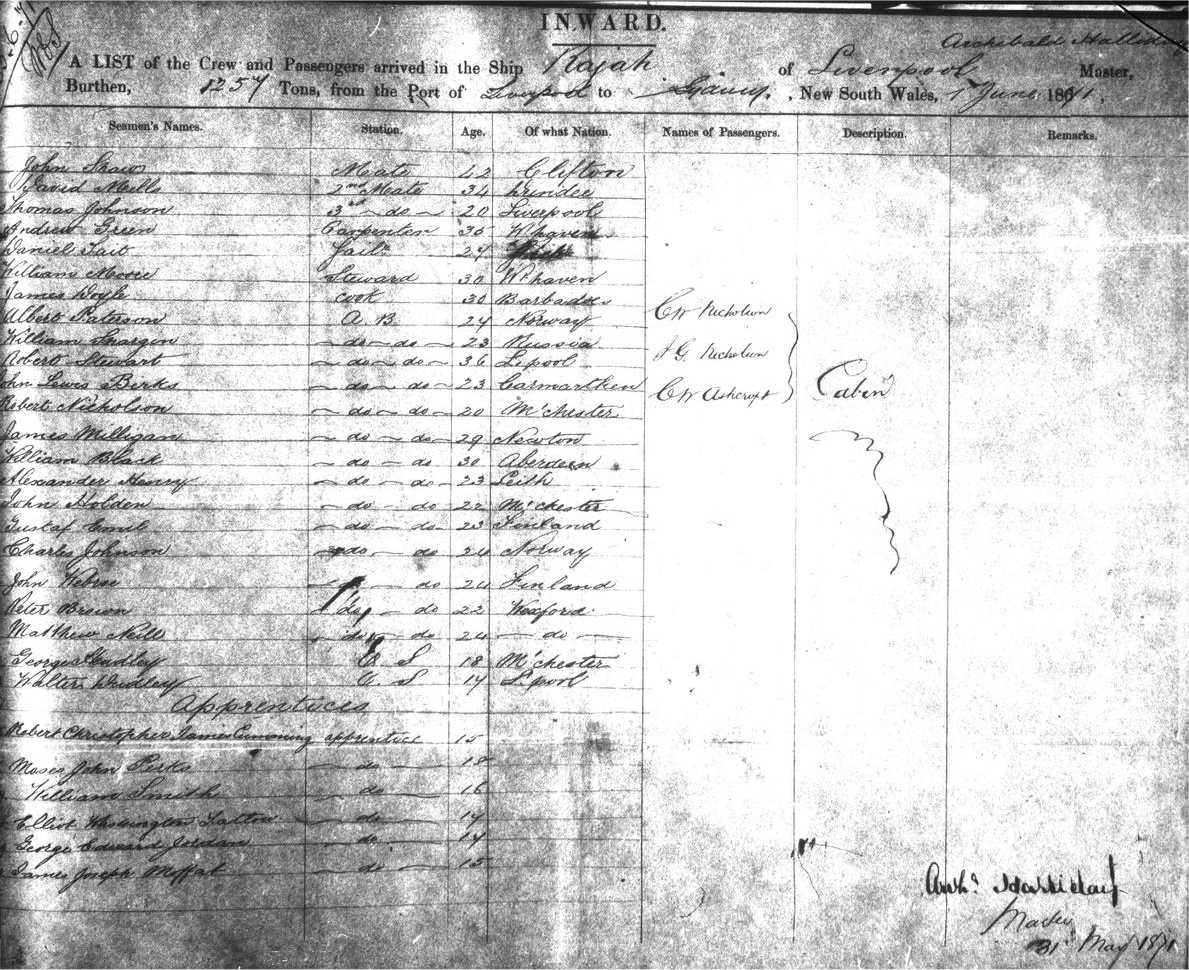 INWARD.
Archibald Halliday
A LIST of the Crew and Passengers arrived in the Ship Rajah of Liverpool Master,
Burthen, 1257 Tons, from the Port of Liverpool to Sydney, New South Wales, 1st June 1871.
Seamen's Names. Station. Age. Of what Nation. Names of Passengers. Description. Remarks.
John Shaw Mate 42 Clifton
David Mills 2nd Mate 34 Dundee
Thomas Johnson 3rd do 20 Liverpool
Andrew Green Carpenter 35 W'haven
Daniel Tait Sailr 24
William Moore Steward 30 W'haven
James Doyle Cook 30 Barbadoes
Albert Paterson A.B 24 Norway C W Nicholson
William Do do 23 Russia
Robert Stewart do do 36 L.pool J G Nicholson
John Lewis Berks do do 23 Carmarthen C W Ashcroft Cabin
Robert Nicholson do do 20 M'chester
James Milligan do do 29 Newton
William Black do do 30 Aberdeen
Alexander Henry do do 23 Leith
John Holden do do 22 M'chester
Gustaf do do 23 Finland
Charles Johnson do do 24 Norway
John do 24 Finland
Peter Brown do do 22 Wexford
Matthew Neill do do 24 do
George Headley O S 18 M'chester
Walter Dudley O. S 17 L.pool
Apprentices
Robert Christopher James Cumming apprentice 15
Moses John Perks do 18
William Smith do 16
Elliot Washington do 14
George Edward Jordan do 17
James Joseph Moffat do 15
Archd Halliday
Master
31st May 1871